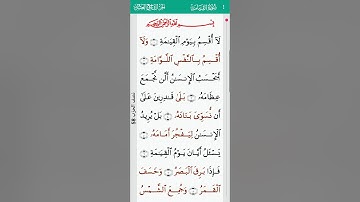 سُورَةُ القِيَامَةِ
بِسْمِ ٱللَّهِ ٱلرَّحْمَٰنِ ٱلرَّحِيمِ
لَآ أُقْسِمُ بِيَوْمِ ٱلْقِيَٰمَةِ ١ وَلَآ
أُقْسِمُ بِٱلنَّفْسِ ٱللَّوَّامَةِ ٢
أَيَحْسَبُ ٱلْإِنسَٰنُ أَلَّن نَّجْمَعَ
عِظَامَهُۥ ٣ بَلَىٰ قَٰدِرِينَ عَلَىٰٓ
أَن نُّسَوِّىَ بَنَانَهُۥ ٤ بَلْ يُرِيدُ
ٱلْإِنسَٰنُ لِيَفْجُرَ أَمَامَهُۥ ٥
يَسْـَٔلُ أَيَّانَ يَوْمُ ٱلْقِيَٰمَةِ ٦
فَإِذَا بَرِقَ ٱلْبَصَرُ ٧ وَخَسَفَ
ٱلْقَمَرُ ٨ وَجُمِعَ ٱلشَّمْسُ